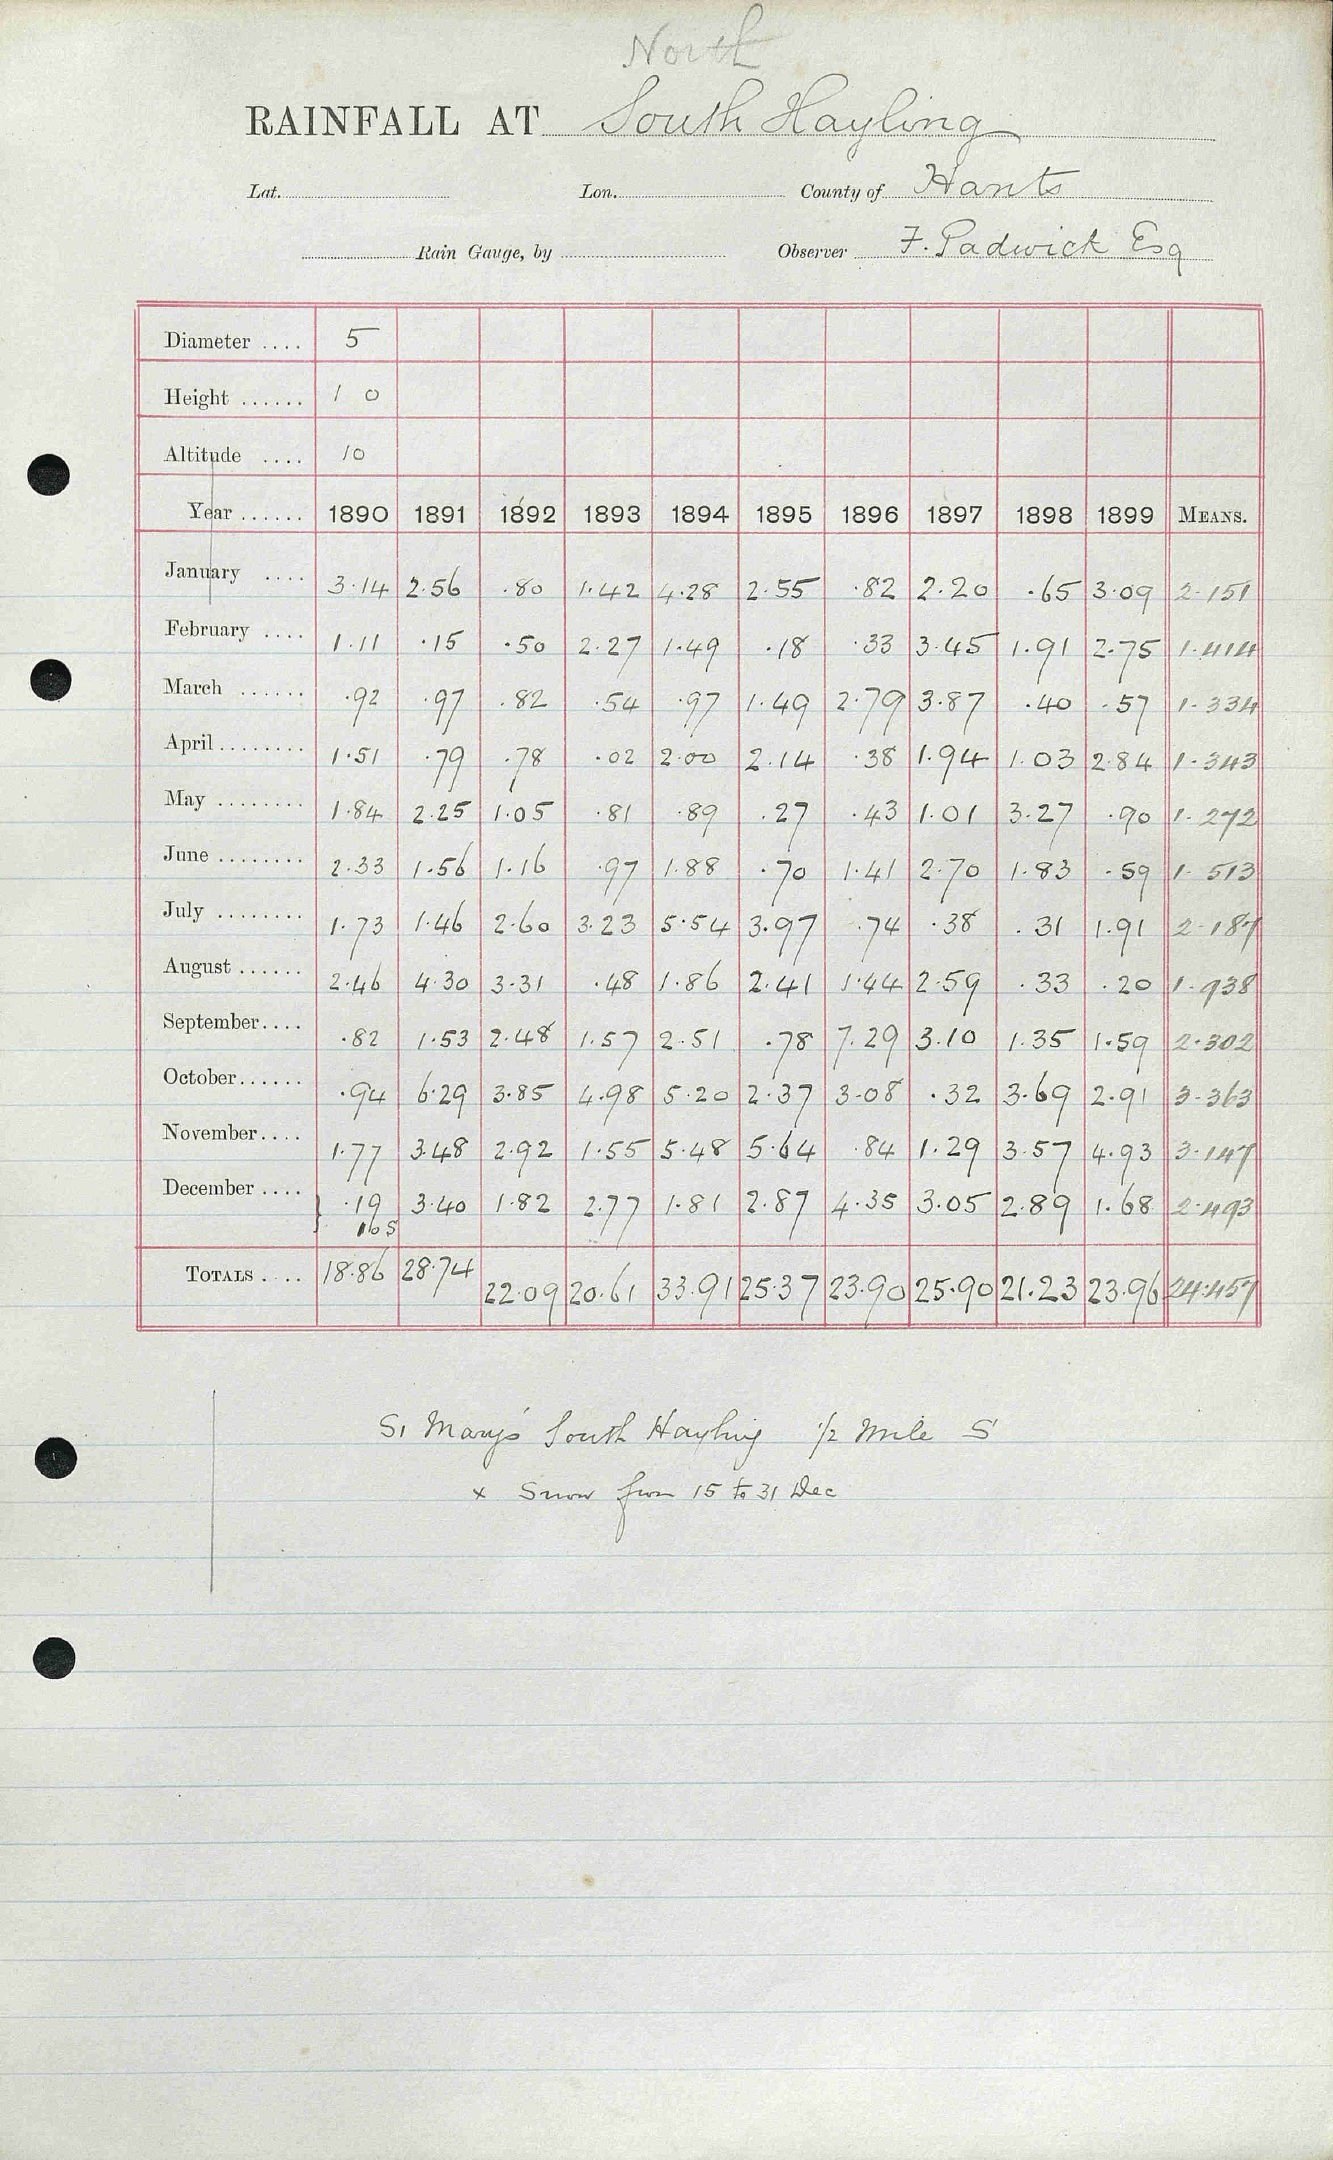 North
RAINFALL AT South Hayling
Lat. Lon. County of Hants
Rain Gauge, by Observer F. Padwick Esq
Diameter .... 5
Height ...... 1 0
Altitude .... 10
Year ...... 1890 1891 1892 1893 1894 1895 1896 1897 1898 1899 MEANS.
January .... 3.14 2.56 .80 1.42 4.28 2.55 .82 2.20 .65 3.09 2.151
February .... 1.11 .15 .50 2.27 1.49 .18 .33 3.45 1.91 2.75 1.414
March ...... .92 .97 .82 .54 .97 1.49 2.79 3.87 .40 .57 1.334
April ........ 1.51 .79 .78 .02 2.00 2.14 .38 1.94 1.03 2.84 1.343
May ........ 1.84 2.25 1.05 .81 .89 .27 .43 1.01 3.27 .90 1.272
June ........ 2.33 1.56 1.16 .97 1.88 .70 1.41 2.70 1.83 .59 1.513
July ........ 1.73 1.46 2.60 3.23 5.54 3.97 .74 .38 .31 1.91 2.187
August ...... 2.46 4.30 3.31 .48 1.86 2.41 1.44 2.59 .33 .20 1.938
September .... .82 1.53 2.48 1.57 2.51 .78 7.29 3.10 1.35 1.59 2.302
October ...... .94 6.29 3.85 4.98 5.20 2.37 3.08 .32 3.69 2.91 3.363
November .... 1.77 3.48 2.92 1.55 5.48 5.64 .84 1.29 3.57 4.93 3.147
December .... } .19 3.40 1.82 2.77 1.81 2.87 4.35 3.05 2.89 1.68 2.493
TOTALS .... 18.86 28.74 22.09 20.61 33.91 25.37 23.90 25.90 21.23 23.96 24.457
St Mary's South Hayling 1/2 Mile S
x Snow from 15 to 31 Dec